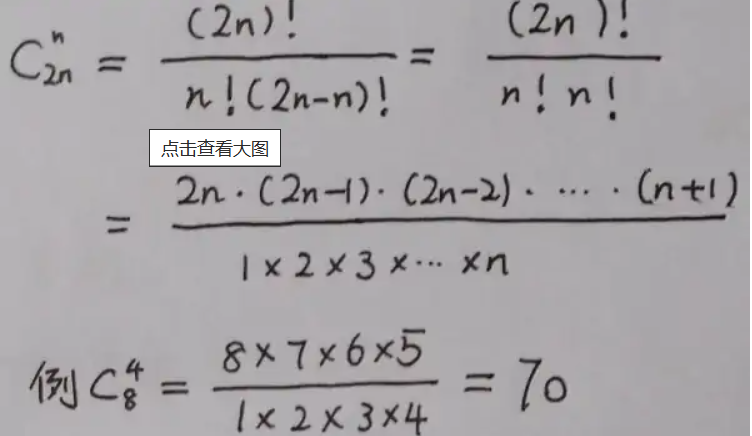 C_{2n}^{n} = \frac{(2n)!}{n!(2n-n)!} = \frac{(2n)!}{n!n!}
点击查看大图
= \frac{2n·(2n-1)·(2n-2)·…·(n+1)}{1×2×3×…×n}
例 C_8^4 = \frac{8×7×6×5}{1×2×3×4} = 70